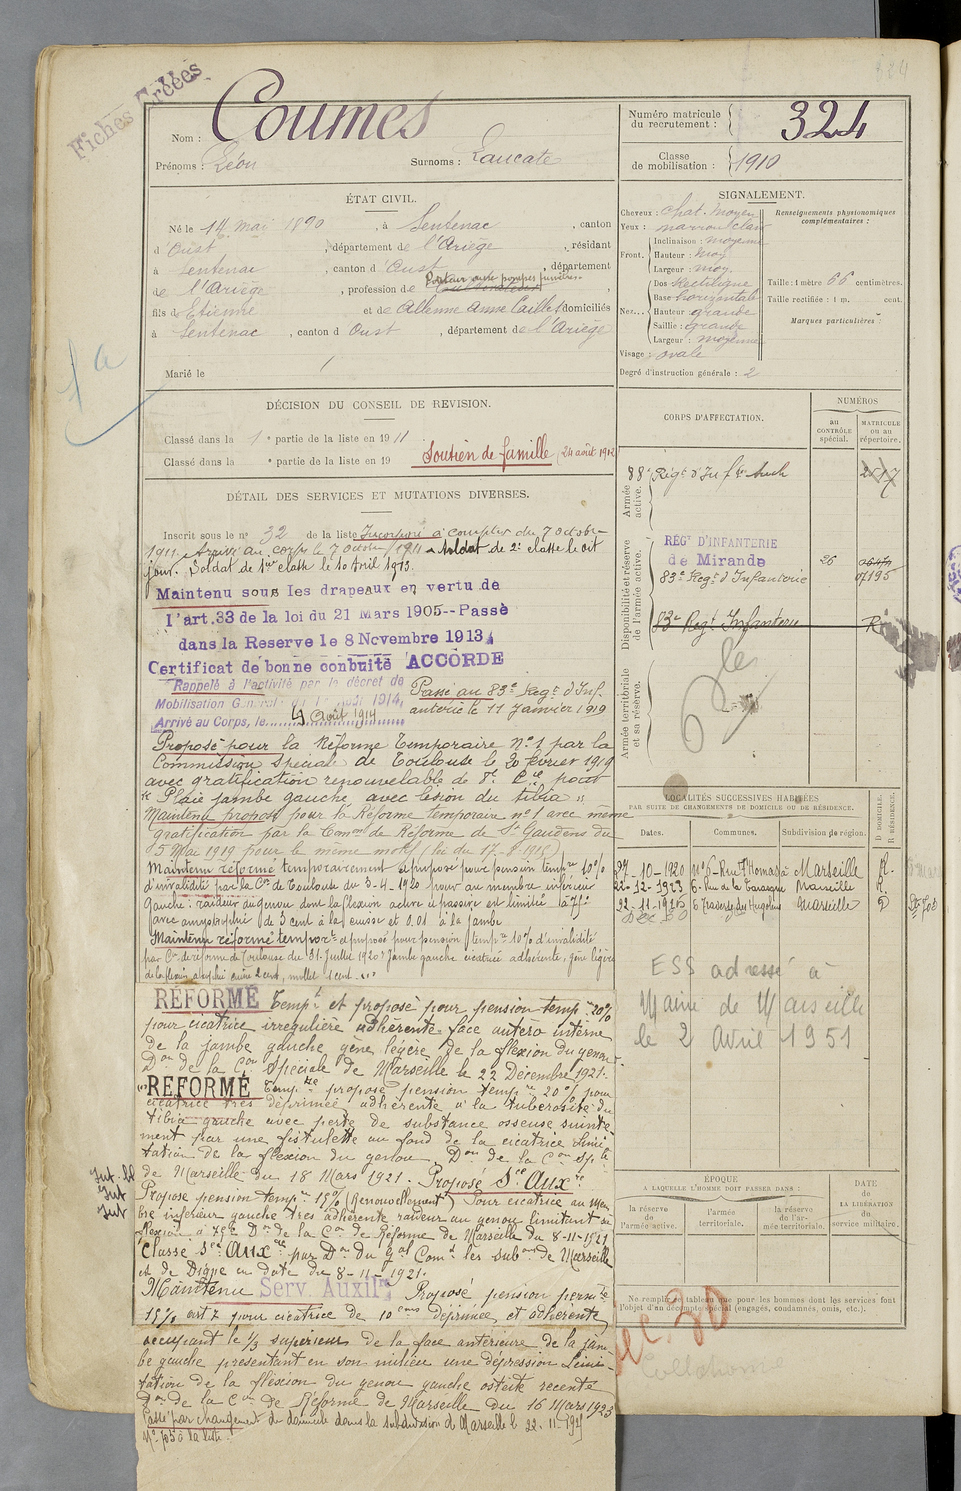 Fiches Créées
Nom : Coumes
Prénoms : Léon Surnoms : Laucate
Numéro matricule du recrutement : 324
Classe de mobilisation : 1910
ÉTAT CIVIL.
Né le 14 mai 1890, à Sentenac, canton
d'Oust, département de l'Ariège, résidant
à Sentenac, canton d'Oust, département
de l'Ariège, profession de Porteur aux pompes funèbres
fils d Etienne et de Allenne Anne Cailles domiciliés
à Sentenac, canton d Oust, département de l'Ariège
Marié le
SIGNALEMENT.
Cheveux : chat. moyen
Yeux : marron clair
Front. Inclinaison : moyenne
Hauteur : moy
Largeur : moy.
Nez... Dos Rectiligne
Base horizontale
Hauteur grande
Saillie : grande
Largeur : moyenne
Visage : ovale
Degré d'instruction générale : 2
Renseignements physionomiques complémentaires :
Taille : 1 mètre 66 centimètres.
Taille rectifiée : 1 m. cent.
Marques particulières :
DÉCISION DU CONSEIL DE REVISION.
Classé dans la 1e partie de la liste en 1911
Classé dans la e partie de la liste en 19
Soutien de famille (24 août 1912)
DÉTAIL DES SERVICES ET MUTATIONS DIVERSES.
Inscrit sous le n° 32 de la liste Incorporé à compter du 7 octobre
1911. Arrivé au corps le 7 octobre 1911 Soldat de 2e classe le dit
jour. Soldat de 1ere classe le 10 Avril 1913.
Maintenu sous les drapeaux en vertu de
l'art. 33 de la loi du 21 Mars 1905--Passé
dans la Reserve le 8 Novembre 1913
Certificat de bonne conduite ACCORDÉ
Rappelé à l'activité par le décret de
Mobilisation Générale du 1 Août 1914,
Arrivé au Corps, le 4 Août 1914
Passé au 83e Regt d'Inf-
anterie le 11 Janvier 1919
Proposé pour la Réforme Temporaire N° 1 par la
Commission Spéciale de Toulouse le 20 février 1919
avec gratification renouvelable de 8e Cie pour
"Plaie jambe gauche avec lésion du tibia"
Maintenu proposé pour la Réforme temporaire n° 1 avec même
gratification par la Comon de Réforme de St Gaudens du
5 Mai 1919 pour le même motif
Maintenu réformé temporairement et proposé pour pension tempre 10%
d'invalidité par la Con de Toulouse du 3-4-1920 pour au membre inférieur
gauche : raideur du genou dont la flexion active et passive est limitée à 75°
avec amyotrophie de 3 cent à la cuisse et 0.01 à la jambe
Maintenu réformé temporre et proposé pour pension tempre 10% d'invalidité
par Con de réforme de Toulouse du 31 Juillet 1920 Jambe gauche cicatrice adhérente, gêne légère
de la flexion
RÉFORMÉ Tempt et proposé pour pension tempre 20%
pour cicatrice irrégulière adhérente face antéro interne
de la jambe gauche gêne légère de la flexion du genou
Don de la Con Spéciale de Marseille le 22 Décembre 1921.
RÉFORMÉ Tempre proposé pension tempre 20% pour
cicatrice très déprimée, adhérente à la tubérosité du
tibia gauche avec perte de substance osseuse suinte-
ment par une fistulette au fond de la cicatrice Limi-
tation de la flexion du genou. Don de la Con Sple
de Marseille du 18 Mars 1921. Proposé Sce Auxre
Propose pension tempre 15% (Renouvellement) Pour cicatrice au mem-
bre inférieur gauche très adhérente raideur au genou limitant la
flexion à 75° Dn de la Con de Réforme de Marseille du 8-11-1921
Classé Sce Auxre par Dn du Gal Comt les subons de Marseille
et de Digne en date du 8-11-1921.
Maintenu Serv. Auxilre Proposé pension permte
15% art 7 pour cicatrice de 10 cms déprimée, et adhérente,
occupant le 1/3 supérieur de la face antérieure de la jam-
be gauche présentant en son milieu une dépression Limi-
tation de la fléxion du genou gauche ostéite récente
Don de la Con de Réforme de Marseille du 16 Mars 1923
Passé par changement de domicile dans la subdivision de Marseille le 22-11-1925
CORPS D'AFFECTATION.
NUMÉROS
au CONTRÔLE spécial.
MATRICULE ou au répertoire.
Armée active.
88e Régt d'Inf ie Auch
Disponibilité et réserve de l'armée active.
RÉGt D'INFANTERIE
de Mirande
83e Regt d'Infanterie 26
83e Regt Infanterie
Armée territoriale et sa réserve.
LOCALITÉS SUCCESSIVES HABITÉES
PAR SUITE DE CHANGEMENTS DE DOMICILE OU DE RÉSIDENCE.
Dates. Communes. Subdivision de région. D DOMICILE. R RÉSIDENCE.
27-10-1920 n° 6 Rue St Thomas à Marseille R.
22-12-1923 6 Rue de la Marseille R.
22-11-1925 6 Traverse du Marseille D
ESS adressé à
Maire de Marseille
le 2 Avril 1951
ÉPOQUE
A LAQUELLE L'HOMME DOIT PASSER DANS :
la réserve de l'armée active.
l'armée territoriale.
la réserve de l'armée territoriale.
DATE de LA LIBÉRATION du service militaire.
Ne remplir ce tableau que pour les hommes dont les services font
l'objet d'un décompte spécial (engagés, condamnés, omis, etc.).